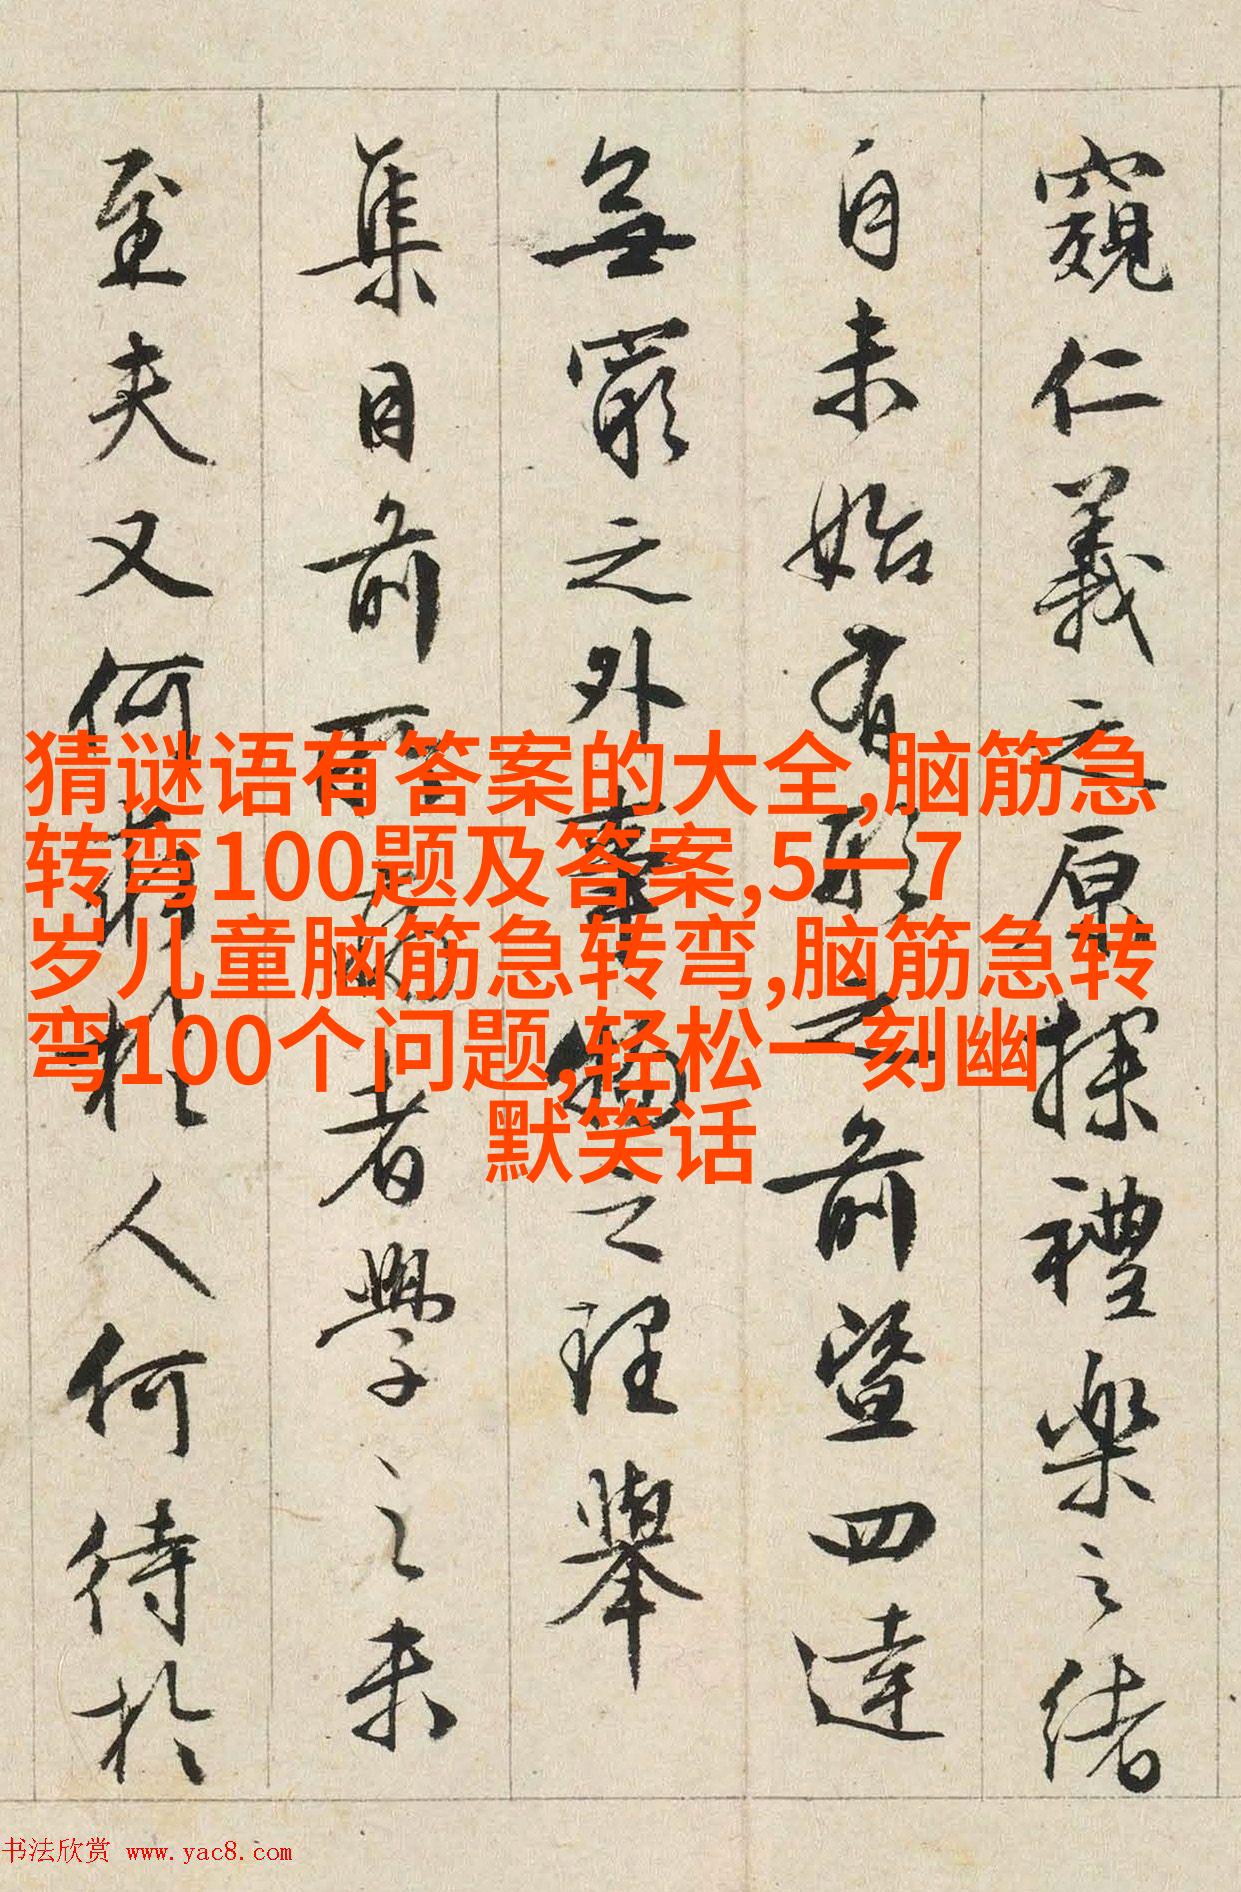 窺仁義之原探禮樂之緒
自未始有形之前暨四達
無窮之外事物之理舉
集目前所謂者學之未
至夫又何尤於人何待於
猜谜语有答案的大全,脑筋急
转弯100题及答案,5一7
岁儿童脑筋急转弯,脑筋急转
弯100个问题,轻松一刻幽
默笑话
书法欣赏 www.yac8.com